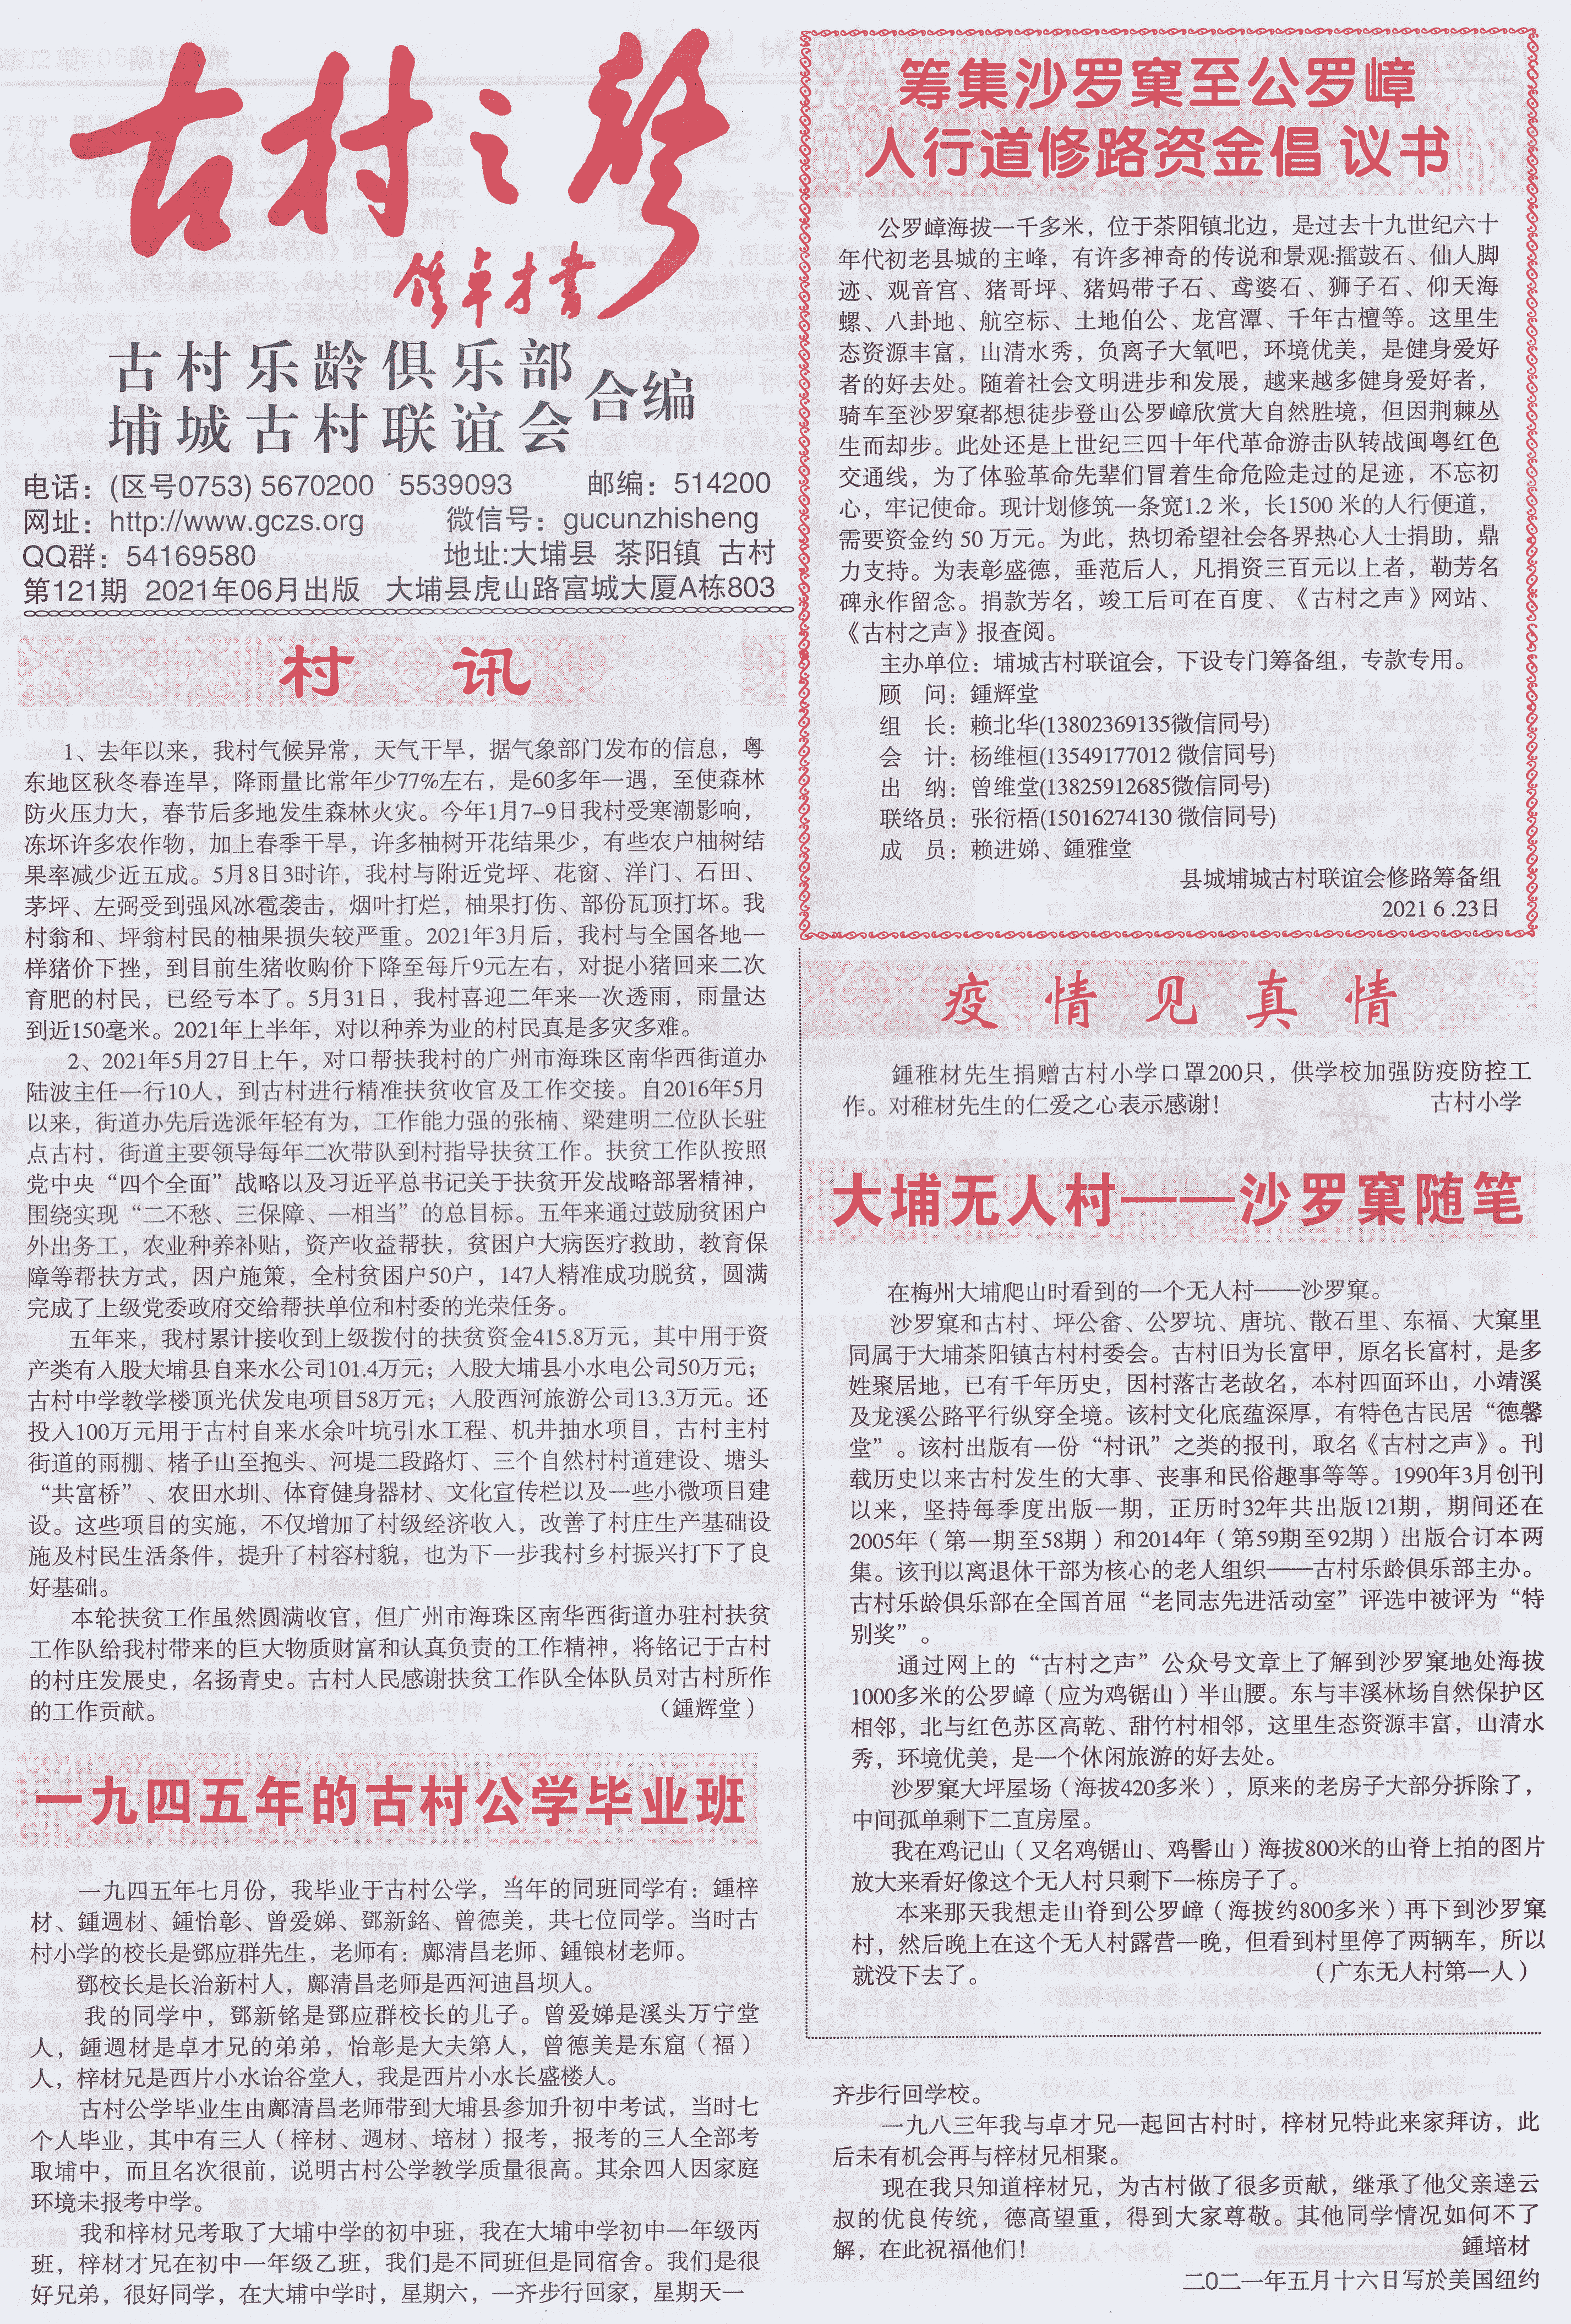 古村之聲
鍾卓才書
古村乐龄俱乐部
埔城古村联谊会
合编
电话：(区号0753) 5670200 5539093 邮编：514200
网址：http://www.gczs.org 微信号：gucunzhisheng
QQ群：54169580 地址:大埔县 茶阳镇 古村
第121期 2021年06月出版 大埔县虎山路富城大厦A栋803
村 讯
1、去年以来，我村气候异常，天气干旱，据气象部门发布的信息，粤
东地区秋冬春连旱，降雨量比常年少77%左右，是60多年一遇，至使森林
防火压力大，春节后多地发生森林火灾。今年1月7–9日我村受寒潮影响，
冻坏许多农作物，加上春季干旱，许多柚树开花结果少，有些农户柚树结
果率减少近五成。5月8日3时许，我村与附近党坪、花窗、洋门、石田、
茅坪、左弼受到强风冰雹袭击，烟叶打烂，柚果打伤、部份瓦顶打坏。我
村翁和、坪翁村民的柚果损失较严重。2021年3月后，我村与全国各地一
样猪价下挫，到目前生猪收购价下降至每斤9元左右，对捉小猪回来二次
育肥的村民，已经亏本了。5月31日，我村喜迎二年来一次透雨，雨量达
到近150毫米。2021年上半年，对以种养为业的村民真是多灾多难。
2、2021年5月27日上午，对口帮扶我村的广州市海珠区南华西街道办
陆波主任一行10人，到古村进行精准扶贫收官及工作交接。自2016年5月
以来，街道办先后选派年轻有为，工作能力强的张楠、梁建明二位队长驻
点古村，街道主要领导每年二次带队到村指导扶贫工作。扶贫工作队按照
党中央“四个全面”战略以及习近平总书记关于扶贫开发战略部署精神，
围绕实现“二不愁、三保障、一相当”的总目标。五年来通过鼓励贫困户
外出务工，农业种养补贴，资产收益帮扶，贫困户大病医疗救助，教育保
障等帮扶方式，因户施策，全村贫困户50户，147人精准成功脱贫，圆满
完成了上级党委政府交给帮扶单位和村委的光荣任务。
五年来，我村累计接收到上级拨付的扶贫资金415.8万元，其中用于资
产类有入股大埔县自来水公司101.4万元；入股大埔县小水电公司50万元；
古村中学教学楼顶光伏发电项目58万元；入股西河旅游公司13.3万元。还
投入100万元用于古村自来水余叶坑引水工程、机井抽水项目，古村主村
街道的雨棚、楮子山至抱头、河堤二段路灯、三个自然村村道建设、塘头
“共富桥”、农田水圳、体育健身器材、文化宣传栏以及一些小微项目建
设。这些项目的实施，不仅增加了村级经济收入，改善了村庄生产基础设
施及村民生活条件，提升了村容村貌，也为下一步我村乡村振兴打下了良
好基础。
本轮扶贫工作虽然圆满收官，但广州市海珠区南华西街道办驻村扶贫
工作队给我村带来的巨大物质财富和认真负责的工作精神，将铭记于古村
的村庄发展史，名扬青史。古村人民感谢扶贫工作队全体队员对古村所作
的工作贡献。 （鍾辉堂）
一九四五年的古村公学毕业班
一九四五年七月份，我毕业于古村公学，当年的同班同学有：鍾梓
材、鍾週材、鍾怡彰、曾爱娣、鄧新銘、曾德美，共七位同学。当时古
村小学的校长是鄧应群先生，老师有：鄺清昌老师、鍾锒材老师。
鄧校长是长治新村人，鄺清昌老师是西河迪昌坝人。
我的同学中，鄧新铭是鄧应群校长的儿子。曾爱娣是溪头万宁堂
人，鍾週材是卓才兄的弟弟，怡彰是大夫第人，曾德美是东窟（福）
人，梓材兄是西片小水诒谷堂人，我是西片小水长盛楼人。
古村公学毕业生由鄺清昌老师带到大埔县参加升初中考试，当时七
个人毕业，其中有三人（梓材、週材、培材）报考，报考的三人全部考
取埔中，而且名次很前，说明古村公学教学质量很高。其余四人因家庭
环境未报考中学。
我和梓材兄考取了大埔中学的初中班，我在大埔中学初中一年级丙
班，梓材才兄在初中一年级乙班，我们是不同班但是同宿舍。我们是很
好兄弟，很好同学，在大埔中学时，星期六，一齐步行回家，星期天一
筹集沙罗窠至公罗嶂
人行道修路资金倡 议书
公罗嶂海拔一千多米，位于茶阳镇北边，是过去十九世纪六十
年代初老县城的主峰，有许多神奇的传说和景观:擂鼓石、仙人脚
迹、观音宫、猪哥坪、猪妈带子石、鸢婆石、狮子石、仰天海
螺、八卦地、航空标、土地伯公、龙宫潭、千年古檀等。这里生
态资源丰富，山清水秀，负离子大氧吧，环境优美，是健身爱好
者的好去处。随着社会文明进步和发展，越来越多健身爱好者，
骑车至沙罗窠都想徒步登山公罗嶂欣赏大自然胜境，但因荆棘丛
生而却步。此处还是上世纪三四十年代革命游击队转战闽粤红色
交通线，为了体验革命先辈们冒着生命危险走过的足迹，不忘初
心，牢记使命。现计划修筑一条宽1.2 米，长1500 米的人行便道，
需要资金约 50 万元。为此，热切希望社会各界热心人士捐助，鼎
力支持。为表彰盛德，垂范后人，凡捐资三百元以上者，勒芳名
碑永作留念。捐款芳名，竣工后可在百度、《古村之声》网站、
《古村之声》报查阅。
主办单位：埔城古村联谊会，下设专门筹备组，专款专用。
顾 问：鍾辉堂
组 长：赖北华(13802369135微信同号)
会 计：杨维桓(13549177012 微信同号)
出 纳：曾维堂(13825912685微信同号)
联络员：张衍梧(15016274130 微信同号)
成 员：赖进娣、鍾雅堂
县城埔城古村联谊会修路筹备组
2021 6 .23日
疫情见真情
鍾稚材先生捐赠古村小学口罩200只，供学校加强防疫防控工
作。对稚材先生的仁爱之心表示感谢！ 古村小学
大埔无人村——沙罗窠随笔
在梅州大埔爬山时看到的一个无人村——沙罗窠。
沙罗窠和古村、坪公畲、公罗坑、唐坑、散石里、东福、大窠里
同属于大埔茶阳镇古村村委会。古村旧为长富甲，原名长富村，是多
姓聚居地，已有千年历史，因村落古老故名，本村四面环山，小靖溪
及龙溪公路平行纵穿全境。该村文化底蕴深厚，有特色古民居“德馨
堂”。该村出版有一份“村讯”之类的报刊，取名《古村之声》。刊
载历史以来古村发生的大事、丧事和民俗趣事等等。1990年3月创刊
以来，坚持每季度出版一期，正历时32年共出版121期，期间还在
2005年（第一期至58期）和2014年（第59期至92期）出版合订本两
集。该刊以离退休干部为核心的老人组织——古村乐龄俱乐部主办。
古村乐龄俱乐部在全国首届“老同志先进活动室”评选中被评为“特
别奖”。
通过网上的“古村之声”公众号文章上了解到沙罗窠地处海拔
1000多米的公罗嶂（应为鸡锯山）半山腰。东与丰溪林场自然保护区
相邻，北与红色苏区高乾、甜竹村相邻，这里生态资源丰富，山清水
秀，环境优美，是一个休闲旅游的好去处。
沙罗窠大坪屋场（海拔420多米），原来的老房子大部分拆除了，
中间孤单剩下二直房屋。
我在鸡记山（又名鸡锯山、鸡髻山）海拔800米的山脊上拍的图片
放大来看好像这个无人村只剩下一栋房子了。
本来那天我想走山脊到公罗嶂（海拔约800多米）再下到沙罗窠
村，然后晚上在这个无人村露营一晚，但看到村里停了两辆车，所以
就没下去了。 （广东无人村第一人）
齐步行回学校。
一九八三年我与卓才兄一起回古村时，梓材兄特此来家拜访，此
后未有机会再与梓材兄相聚。
现在我只知道梓材兄，为古村做了很多贡献，继承了他父亲達云
叔的优良传统，德高望重，得到大家尊敬。其他同学情况如何不了
解，在此祝福他们！ 鍾培材
二〇二一年五月十六日写於美国纽约